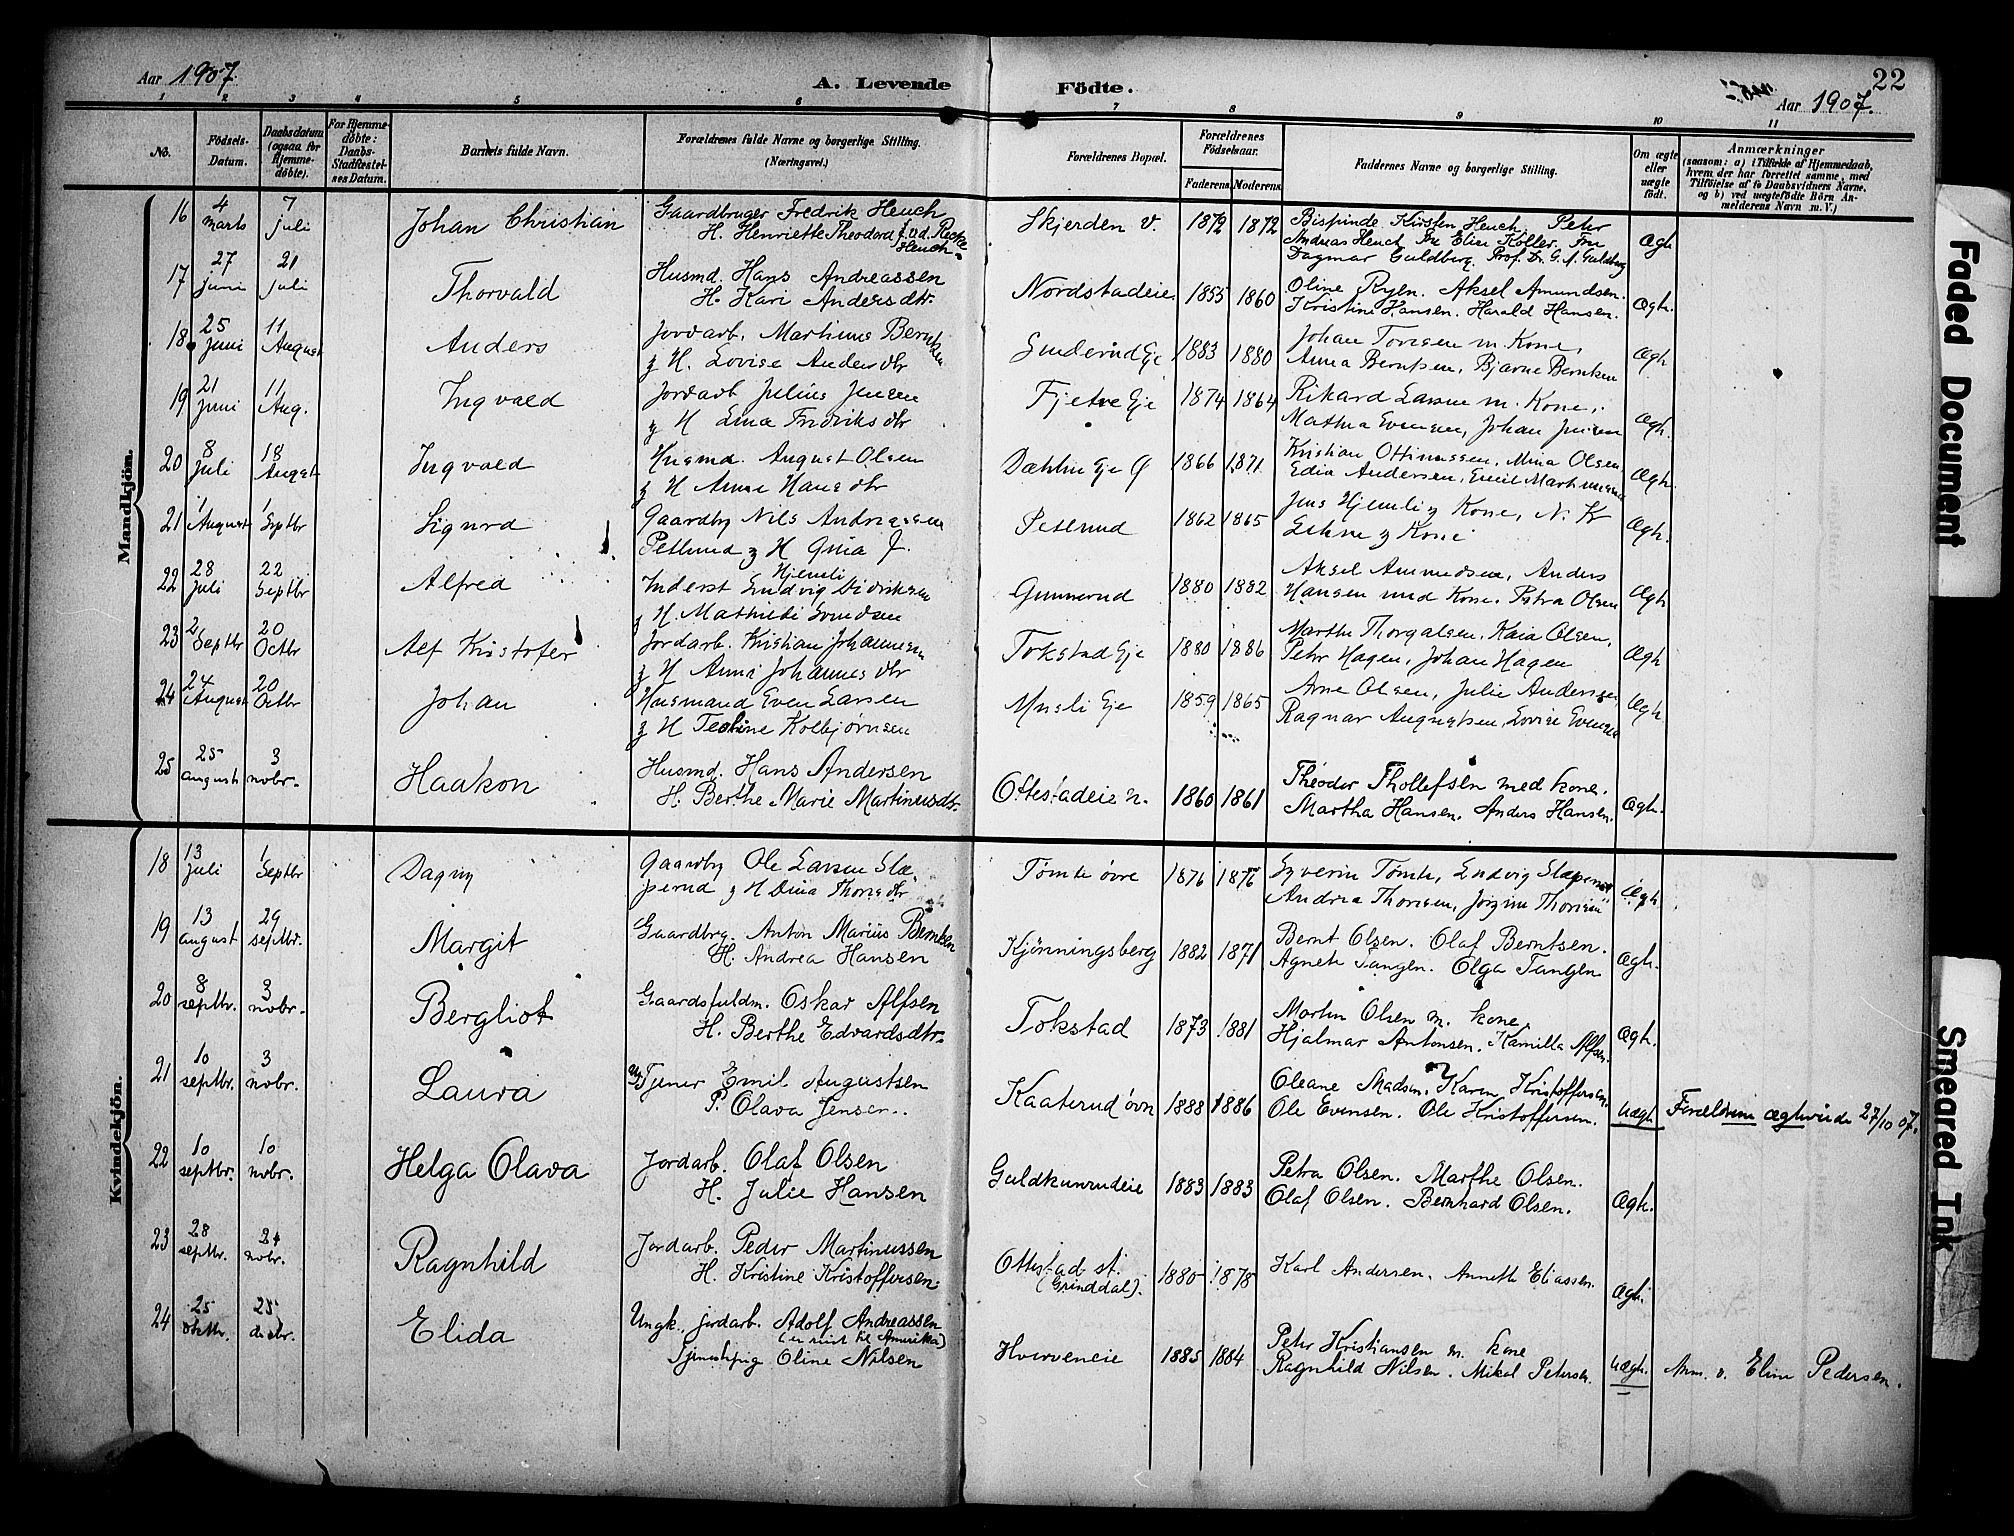 Aar 1907.
A. Levende Födte.
22
Aar 1907.
1 2 3 4 5 6 7 8 9 10 11
No.
Födsels-Datum.
Daabsdatum (ogsaa for Hjemmedöbte).
For Hjemmedöbte: Daabs-Stadfæstelses Datum.
Barnets fulde Navn.
Forældrenes fulde Navne og borgerlige Stilling. (Næringsvei.)
Forældrenes Bopæl.
Forældrenes Födselsaar.
Faderens. Moderens.
Faddernes Navne og borgerlige Stilling.
Om ægte eller uægte födt.
Anmærkninger
(saasom: a) i Tilfælde af Hjemmedaab, hvem der har forrettet samme, med Tilföielse af to Daabsvidners Navne, og b) ved uægtefödte Börn Anmelderens Navn m. V.)
Mandkjön.
16 4 marts 7 juli Johan Christian Gaardbruger Fredrik Heuch
H. Henriette Theodora f. v.d. Recke Heuch. Skjerden v. 1872 1872 Bispinde Kirsten Heuch, Peter
Andreas Heuch Fru Elise Koller, Fru
Dagmar Guldberg. Prof. Dr. G. A. Guldberg Ægh
17 27 juni 21 juli Thorvald Husmd. Hans Andreassen
H. Kari Andersdtr. Nordstadeie 1855 1860 Oline Ryen. Aksel Amundsen.
Kristine Hansen. Harald Hansen. Ægh.
18 25 juni 11 August Anders Jordarb. Martinus Berntsen
& H. Lovise Andersdtr Eje 1883 1880 Johan Toresen m. Kone,
Anna Berntsen, Bjarne Berntsen Ægh.
19 21 juni 11 Aug. Ingvald Jordarb Julius Jensen
& H Lina Fredriksdtr Fjetre Eje 1874 1864 Rikard Larsen m. Kone,
Mathea Evensen, Johan Jensen Ægh.
20 8 juli 18 August Ingvald Husmd. August Olsen
& H Anne Hansdtr Dæhlin Eje Ø 1866 1871 Kristian Ottinussen, Mina Olsen
Edia Andersen, Emil Martinusen Ægh.
21 1 August 1 Septbr Sigurd Gaardbr Nils Andreassen
Petlund & H J. Petlund 1862 1865 Jens Hjemli & Kone, N. Kr
& Kone Ægh.
22 28 Juli 22 Septbr Alfred Inderst Ludvig Didriksen Hjemli
& H Mathilde Gunnerud 1880 1882 Aksel Amundsen, Anders
Hansen med Kone. Petra Olsen Ægh
23 2 Septbr 20 Octbr Alf Kristofer Jordarb. Kristian Johannesen
& H Anne Johannesdtr Tokstad Eje 1880 1886 Marthe Thorgalsen, Kaia Olsen,
Peter Hagen, Johan Hagen Ægh
24 24 August 20 Octbr Johan Husmand Even Larsen
& H Teoline Kolbjørnsen Musli Eje 1859 1865 Arne Olsen, Julie Andersen
Ragnar Augustsen, Lovise Evensen Ægh
25 25 august 3 novbr. Haakon Husmd. Hans Andersen
H. Berthe Marie Martinusdtr. Ottestadeie n. 1860 1861 Theodor Thollefsen med kone.
Martha Hansen. Anders Hansen. Ægh.
Kvindekjön.
18 13 juli 1 Septbr Dagny Gaardbr Ole Larsen Slæperud
& H Dina Thoresdtr Tømte øvre 1876 1876 Syverin Tømte, Ludvig Slæperud
Andrea Thoresen, Jørgine Thoresen Ægh
19 13 august 29 septbr. Margit Gaardbrg. Anton Marius Berntsen
H. Andrea Hansen Kjønningsberg 1882 1871 Bernt Olsen. Olaf Berntsen.
Agnete Tangen. Olga Tangen Ægh.
20 8 septbr. 3 novbr. Bergliot Gaardsfuldm. Oskar Alfsen
H. Berthe Edvardsdtr. Tokstad 1873 1881 Martin Olsen m. kone.
Hjalmar Antonsen. Kamilla Alfsen. Ægh.
21 10 septbr. 3 novbr. Laura Tjener Emil Augustsen
P. Olava Jensen. Kaaterud øvn 1888 1886 Oleane Madsen. Karen Kristoffersen.
Ole Evensen. Ole Kristoffersen. Uægh. Forældrene ægteviede 27/10 07.
22 10 septbr. 10 novbr. Helga Olava Jordarb. Olaf Olsen
H. Julie Hansen Guldkunrudeie 1883 1883 Petra Olsen. Marthe Olsen.
Olaf Olsen. Bernhard Olsen. Ægh.
23 28 septbr. 24 novbr. Ragnhild Jordarb. Peder Martinussen
H. Kristine Kristoffersen. Ottestad st. (Grinddal). 1880 1878 Karl Andersen. Annette Eliassen. Ægh.
24 25 oktbr. 25 decbr. Elida Ungk. jordarb. Adolf Andreassen
(er reist til Amerika)
Tjenestepig Oline Nilsen Hverveneie 1885 1884 Peter Kristiansen m. kone
Ragnhild Nilsen. Mikal Petersen. Uægh. Anm. v. Eline Pedersen.
Faded Document
Smeared Ink